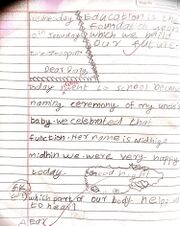 Wednesday Education is the
foundation upon
which we build
our future
Dear Diary
Today I went to school because
naming ceremony of my uncle's
baby we celebrated that
function. Her name is
we were very happy
today. Good night
Q) which part of our body helps us
to hear?
A) Ear